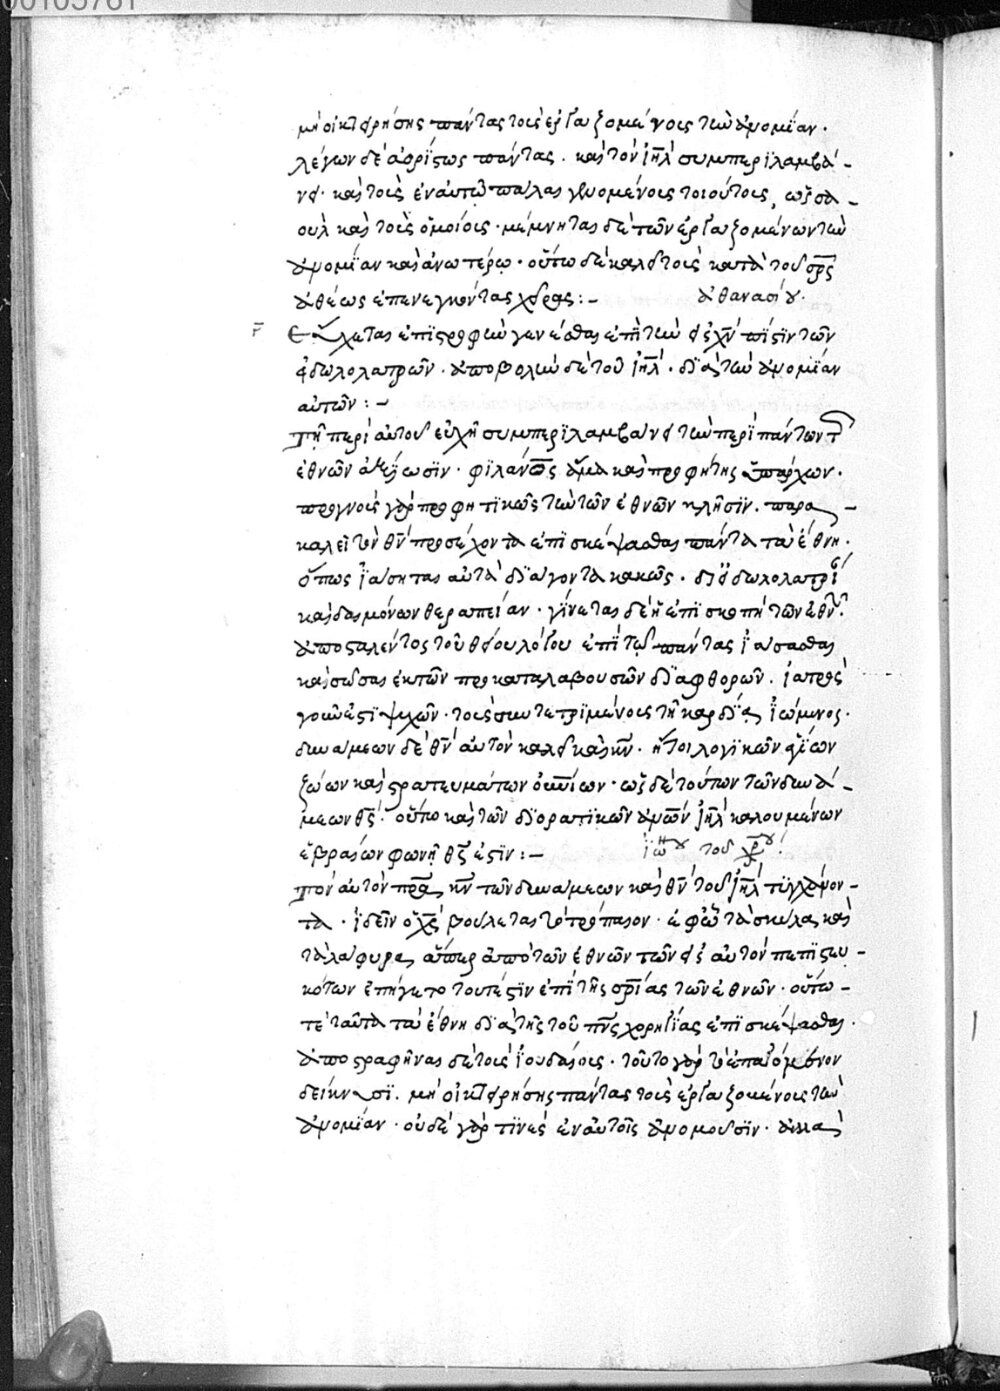 00105761
μὴ οἰκτιρήσης πάντας τοὺς ἐργαζομένους τὴν ἀνομίαν.
λέγων δὲ ἀορίστως πάντας. καὶ τὸν ἰηλ συμπεριλαμβά-
νει. καὶ τοὺς ἐν αὐτῷ πάλαι γενομένους τοιούτους, ὡς σα-
οὺλ καὶ τοὺς ὁμοίους. μέμνηται δὲ τῶν ἐργαζομένων τὴν
ἀνομίαν καὶ ἀνωτέρω. οὕτω δὲ καλεῖ τοὺς κατὰ τοῦ σρς
ἀθέως ἐπενεγκόντας χεῖρας:- ἀθανασίου.
Εὔχεται ἐπιστροφὴν γενέσθαι ἐπὶ τὴν εἰς χν πίστιν τῶν
εἰδωλολατρῶν. ἀποβολὴν δὲ τοῦ ἰηλ. διὰ τὴν ἀνομίαν
αὐτῶν:-
Τῇ περὶ αὐτοῦ εὐχῇ συμπεριλαμβάνει τὴν περὶ πάντων τ
ἐθνῶν ἀξίωσιν. φιλάνος ἅμα καὶ προφήτης ὑπάρχων.
προγνοὺς γὰρ προφητικῶς τὴν τῶν ἐθνῶν κλῆσιν. παρα-
καλεῖ τὸν θν προσέχοντα ἐπισκέψασθαι πάντα τὰ ἔθνη.
ὅπως ἰάσηται αὐτὰ διάγοντα κακῶς. δι' εἰδωλολατρεί
καὶ δαιμόνων θεραπείαν. γίνεται δὲ ἡ ἐπισκοπὴ τῶν ἐθν.
ἀποσταλέντος τοῦ θείου λόγου ἐπὶ τῷ πάντας ἰάσασθαι
καὶ σῶσαι ἐκ τῶν προκαταλαβουσῶν διαφθορῶν. ἰατρὸς
γοῦν ἐστι ψυχῶν. τοὺς συντετριμμένους τῇ καρδίᾳ ἰώμενος.
δυνάμεων δὲ θν αὐτὸν καλεῖ καὶ κν. ἤτοι λογικῶν ἁγίων
ζώων καὶ στρατευμάτων οὐνίων. ὡς δὲ τούτων τῶν δυνά-
μεων θς. οὕτω καὶ τῶν διορατικῶν ἀνων ἰηλ καλουμένων
ἑβραίων φωνῇ θς ἐστιν:- ἰωη τοῦ χρ
Τὸν αὐτὸν πρα κν τῶν δυνάμεων καὶ θν τοῦ ἰηλ τυγχάνον-
τα. ἰδεῖν ὀχς βούλεται τρόπαιον. ἐφ' ᾧ τὰ σκύλα καὶ
τὰ λάφυρα ἅπερ ἀπὸ τῶν ἐθνῶν τῶν εἰς αὐτὸν πεπιστευ-
κότων ἐπήγετο τουτέστιν ἐπὶ τῆς σρίας τῶν ἐθνῶν. οὕτω-
τε ταῦτα τὰ ἔθνη διὰ τῆς τοῦ πνς χορηγίας ἐπισκέψασθαι.
ἀποστραφῆναι δὲ τοὺς ἰουδαίους. τοῦτο γὰρ τὸ ἐπαγόμενον
δείκνυσι. μὴ οἰκτιρήσης πάντας τοὺς ἐργαζομένους τὴν
ἀνομίαν. οὐδὲ γάρ τινες ἐν αὐτοῖς ἀνομοῦσιν. ἀλλὰ